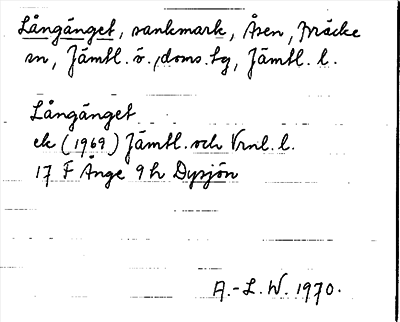 Långänget, sankmark, Åsen, Bräcke
sn, Jämtl. ö., doms.tg, Jämtl. l.
Långänget
ek (1969) Jämtl. och Vrnl. l.
17 F Ånge 9 h Dysjön
A.-L. W. 1970.